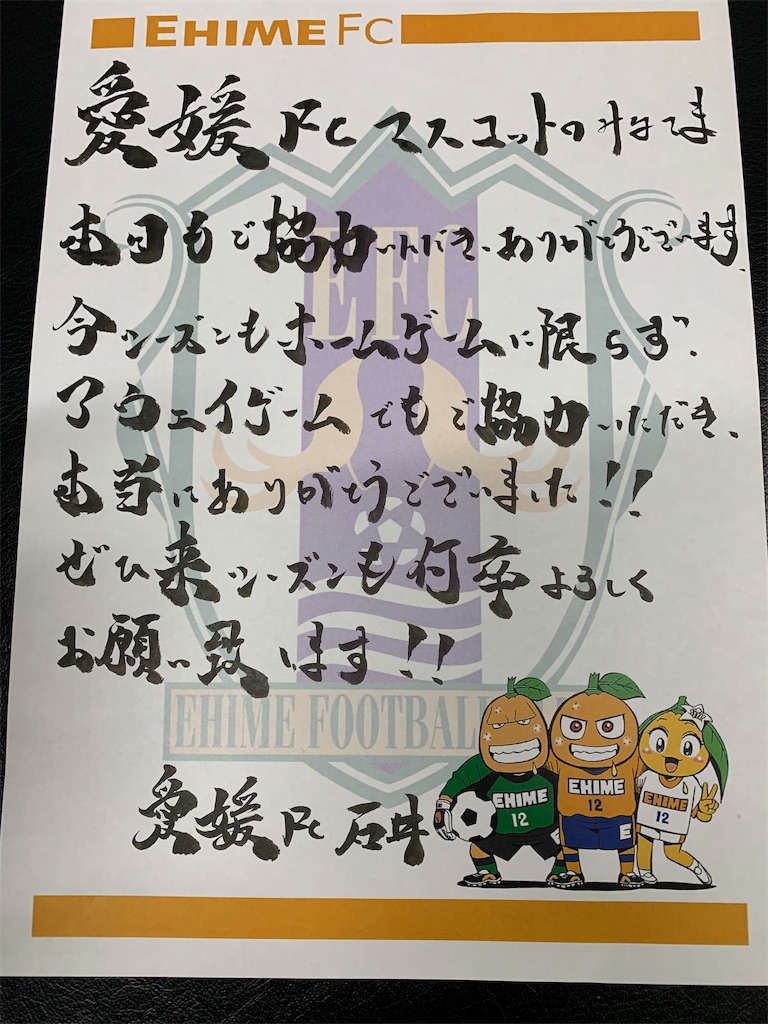 EHIME FC
愛媛FCマスコットのみなさま
本日もご協力いただき、ありがとうございます。
EFC
今シーズンもホームゲームに限らず、
アウェイゲームでもご協力いただき、
本当にありがとうございました!!
ぜひ来シーズンも何卒よろしく
お願い致します!!
EHIME FOOTBAL
愛媛FC 石井
EHIME
12
EHIME
12
E
EHIME
12